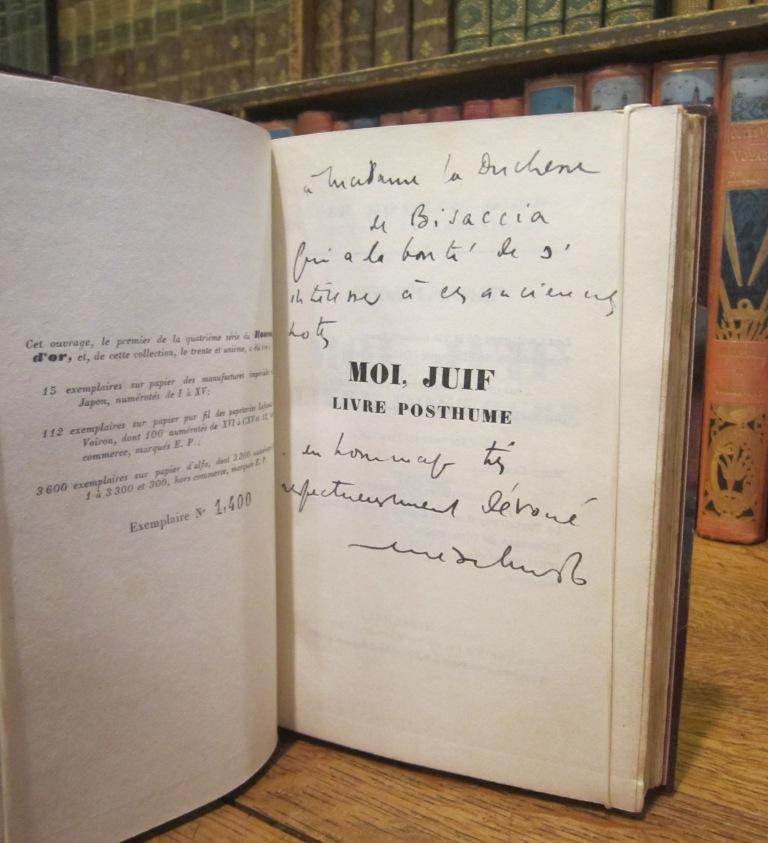 Cet ouvrage, le premier de la quatrième série du
d'or, et, de cette collection, le trente et unième, a été
15 exemplaires sur papier des manufactures
Japon, numérotés de I à XV;
112 exemplaires sur papier pur fil des papeteries
Voiron, dont 100 numérotés de XVI à CXV et
commerce, marqués E. P.;
3 600 exemplaires sur papier d'alfa, dont 3 300
1 à 3 300 et 300, hors commerce, marqués E. P.
Exemplaire N° 1.400
à Madame la Duchesse
de Bisaccia
qui a la bonté de s'
intéresser à ces anciennes
notes
MOI, JUIF
LIVRE POSTHUME
en hommage très
respectueusement dévoué